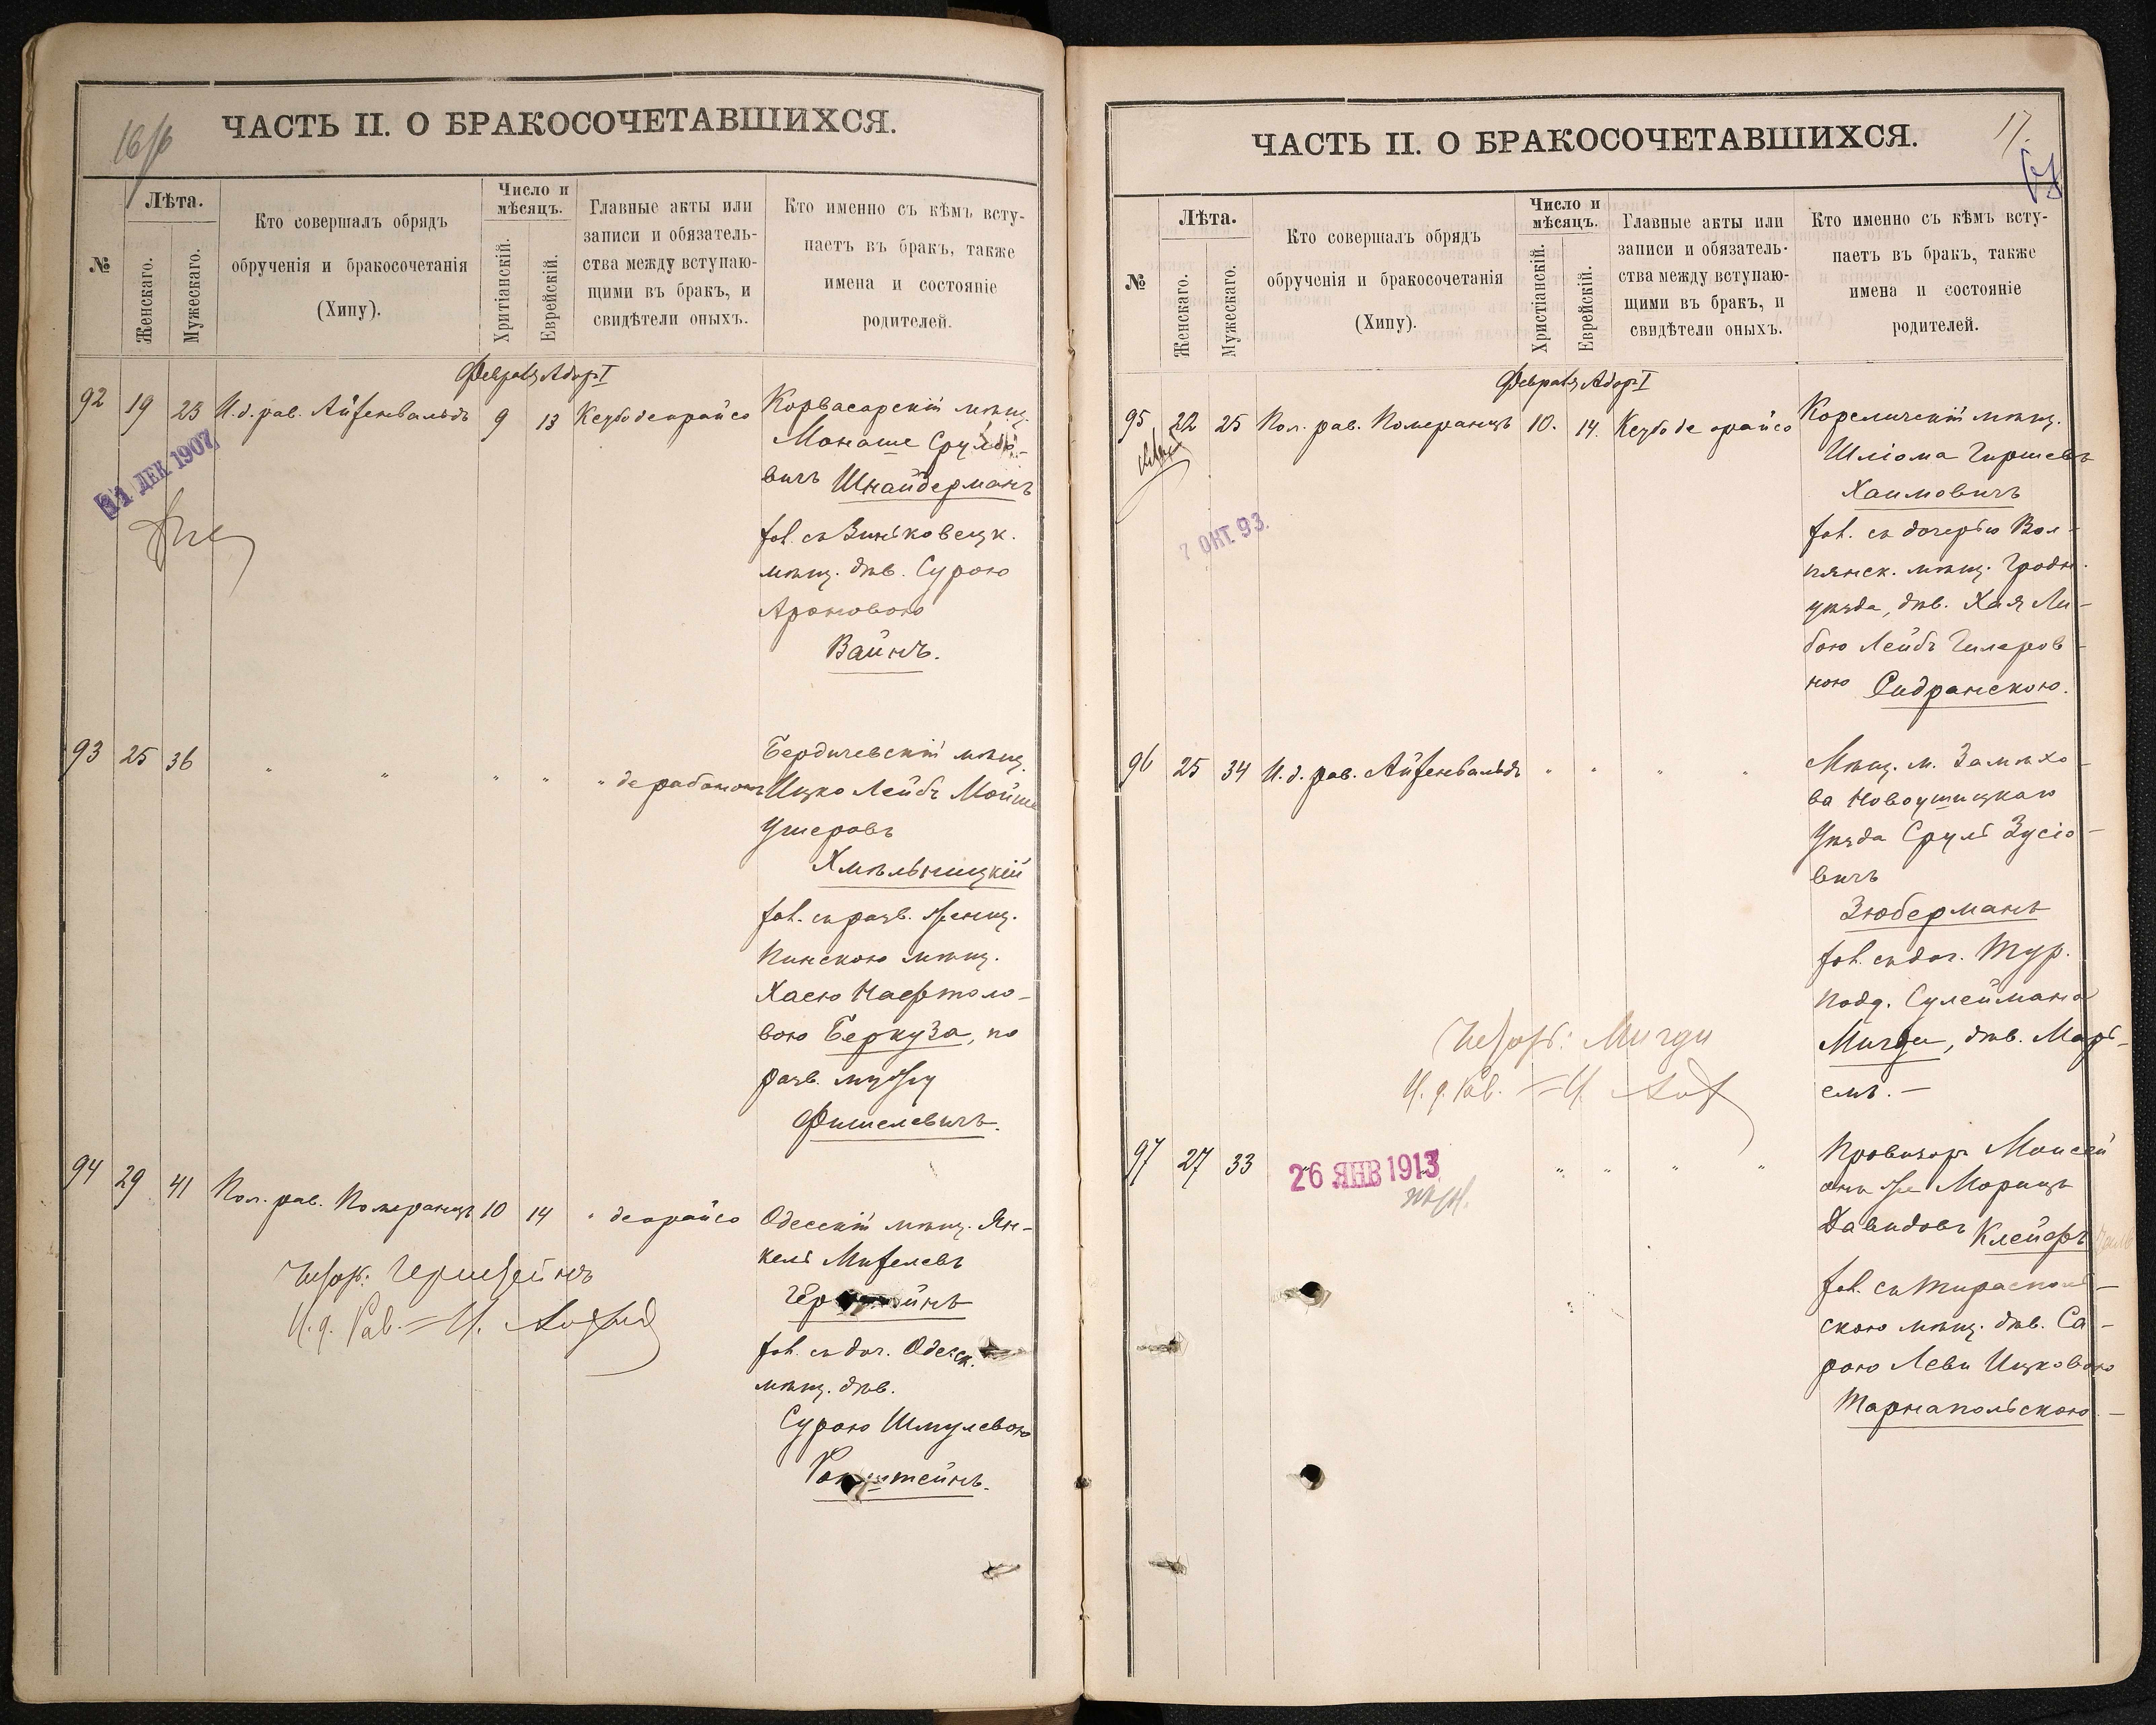 16/6
ЧАСТЬ II. О БРАКОСОЧЕТАВШИХСЯ.
№
Лѣта.
Женскаго.
Мужескаго.
Кто совершалъ обрядъ
обрученія и бракосочетанія
(Хипу).
Число и
мѣсяцъ.
Хритіанскій.
Еврейскій.
Главные акты или
записи и обязатель-
ства между вступаю-
щими въ бракъ, и
свидѣтели оныхъ.
Кто именно съ кѣмъ всту-
паетъ въ бракъ, также
имена и состояніе
родителей.
Февраль Адаръ I
92 19 23 И.д. рав. Айзенвальдъ 9 13 Кезубо деорайсо
Корвасарскій мѣщ.
Монаше Сруле-
вичъ Шнайдерманъ
хол. съ Виньковецк.
мѣщ. дѣв. Сурою
Ароновою
Вайнъ.
31 ДЕК 1907
93 25 36 " " " " " дерабононъ
Бердичевскій мѣщ.
Ицко Лейбъ Мойше
Ушеровъ
Хмѣльницкій
хол. съ разв. женщ.
Пинскою мѣщ.
Хаею Нафтоло-
вою Беркуза, по
разв. мужу
Фишелевичъ.
94 29 41 Пом. рав. Померанцъ 10 14 " деорайсо
Одесскій мѣщ. Ян-
кель Мизелевъ
хол. съ доч. Одесск.
мѣщ. дѣв.
Сурою Шмулевою
И. д. Рав.
ЧАСТЬ II. О БРАКОСОЧЕТАВШИХСЯ.
17.
№
Лѣта.
Женскаго.
Мужескаго.
Кто совершалъ обрядъ
обрученія и бракосочетанія
(Хипу).
Число и
мѣсяцъ.
Христіанскій.
Еврейскій.
Главные акты или
записи и обязатель-
ства между вступаю-
щими въ бракъ, и
свидѣтели оныхъ.
Кто именно съ кѣмъ всту-
паетъ въ бракъ, также
имена и состояніе
родителей.
Февраль Адаръ I
95 22 25 Пом. рав. Померанцъ 10. 14. Кезубо де орайсо
Кореличскій мѣщ.
Шліома Гиршевъ
Хаимовичъ
хол. съ дочерью Вол-
пянск. мѣщ. Гродн.
уѣзда, дѣв. Хая Ли-
бою Лейбъ Гилеров-
ною Сидранскою.
7 ОКТ. 93.
96 25 34 И.д. рав. Айзенвальдъ " " " "
Мѣщ. м. Замѣхо-
ва Новоушицкаго
Уѣзда Сруль Зусіо-
вичъ
Зюберманъ
хол. съ доч. Тур.
подд. Сулеймана
Мизди, дѣв. Марь-
емъ. —
И. д. Рав.
97 27 33 " " " "
Провизоръ Моисей
онъ же Морицъ
Давидовъ Клейфъ
хол. съ Тирасполь-
скою мѣщ. дѣв. Са-
рою Леви Ицковою
Тарнапольскою. —
26 ЯНВ 1913